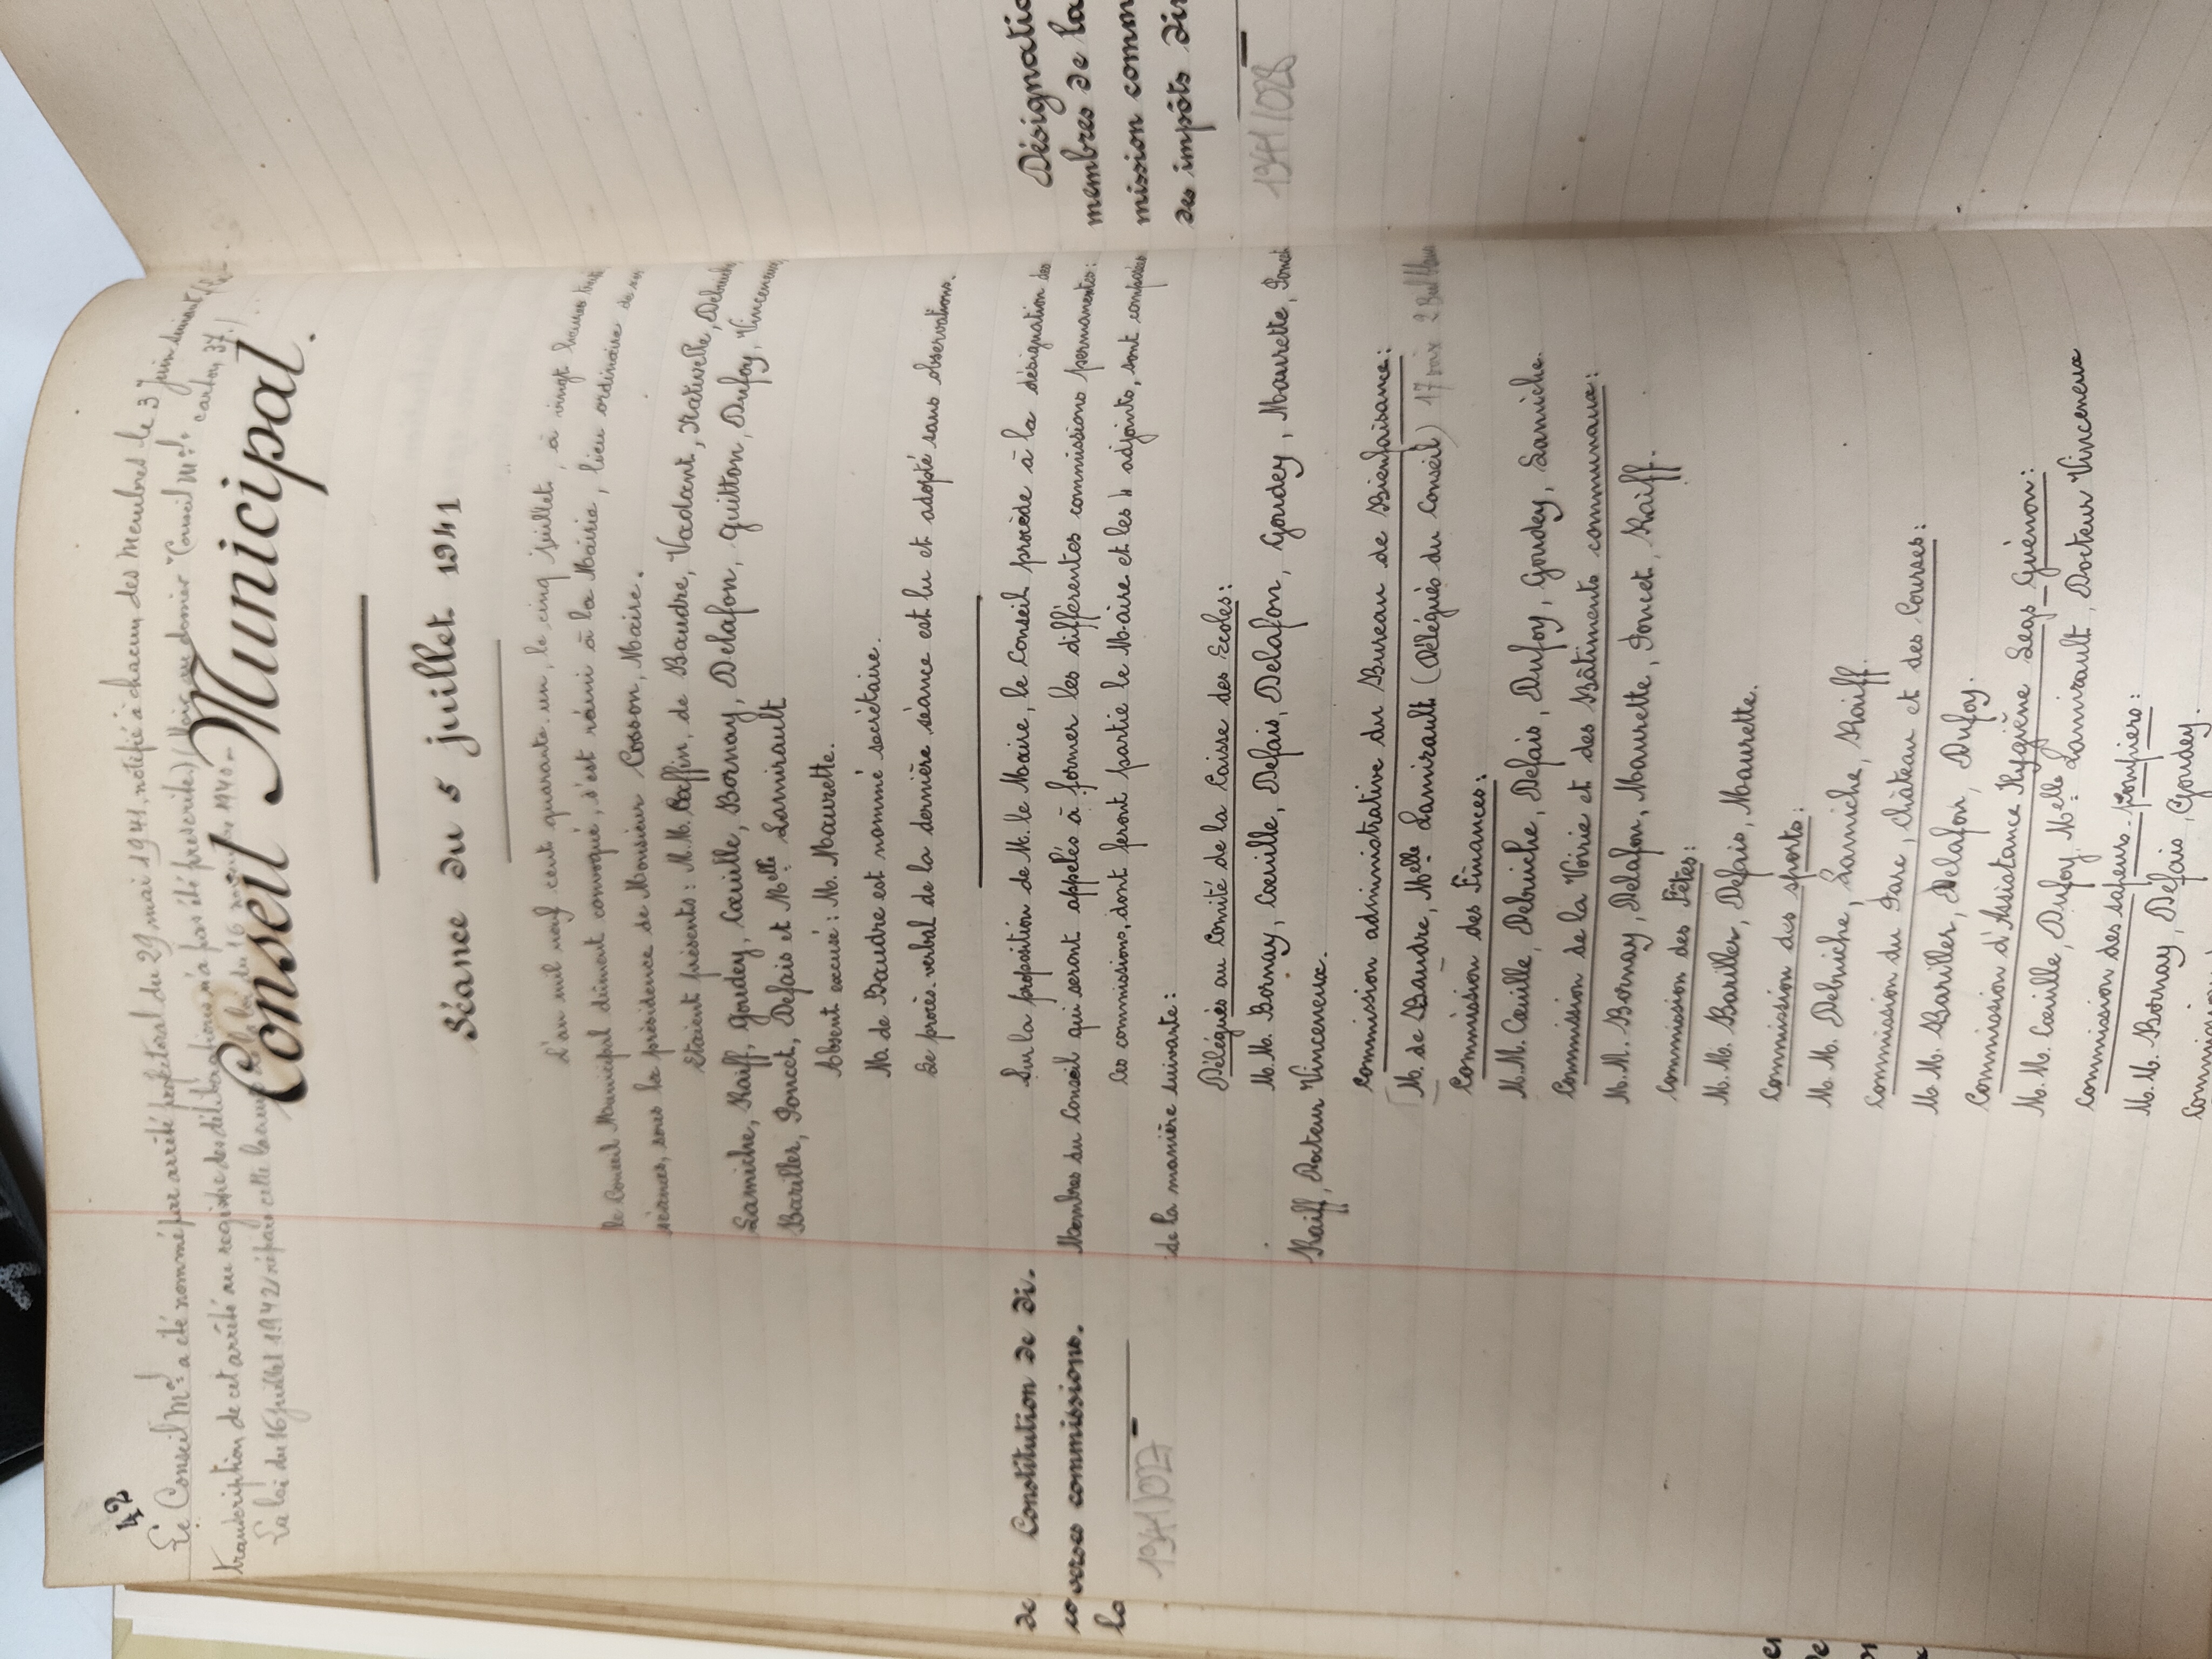 42
Le Conseil Mal a été nommé par arrêté préfectoral du 29 mai 1941, notifié à chacun des Membres le 3 juin suivant
transcription de cet arrêté au registre des délibérations n'a pas été prescrite.) carton 37.)
La loi du 16 juillet 1942 celle du 16 1940
Conseil Municipal.
Séance du 5 juillet 1941
L'an mil neuf cent quarante-un, le cinq juillet, à vingt heures
le Conseil Municipal dûment convoqué, s'est réuni à la Mairie, lieu ordinaire de
séances, sous la présidence de Monsieur Cosson, Maire.
Etaient présents: M.M. Caffin, de Baudre, Vadant, Debruiche
Lamiche, Raiff, Goudey, Cœuille, Bornay, Delafon, Guitton, Dufoy, Vinceneux
Bariller, Poncet, Defais et Melle Lamirault
Absent excusé: M. Maurette.
M. de Baudre est nommé secrétaire.
Le procès-verbal de la dernière séance est lu et adopté sans observations.
Constitution de di-
verses commissions.
1941/027
Sur la proposition de M. le Maire, le Conseil procède à la désignation des
Membres du Conseil qui seront appelés à former les différentes commissions permanentes:
Ces commissions, dont feront partie le Maire et les 4 adjoints, sont composées
de la manière suivante:
Délégués au Comité de la Caisse des Ecoles:
M.M. Bornay, Cœuille, Defais, Delafon, Goudey, Maurette, Poncet
Raiff, Docteur Vinceneux.
Commission administrative du Bureau de Bienfaisance:
M. de Baudre, Melle Lamirault (Délégués du Conseil) 17 voix 2 Bul blancs
Commission des Finances:
M.M. Cœuille, Debruiche, Defais, Dufoy, Goudey, Lamiche.
Commission de la Voirie et des Bâtiments communaux:
M.M. Bornay, Delafon, Maurette, Poncet, Raiff.
Commission des Fêtes:
M.M. Bariller, Defais, Maurette.
Commission des sports:
M.M. Debruiche, Lamiche, Raiff.
Commission du Parc, château et des Courses:
M.M. Bariller, Delafon, Dufoy.
Commission d'Assistance Hygiène Legs Guénon:
M.M. Cœuille, Dufoy, Melle Lamirault, Docteur Vinceneux
Commission des sapeurs-pompiers:
M.M. Bornay, Defais, Goudey.
Désignatio
membres de la
mission comm
des impôts dir
1941/028